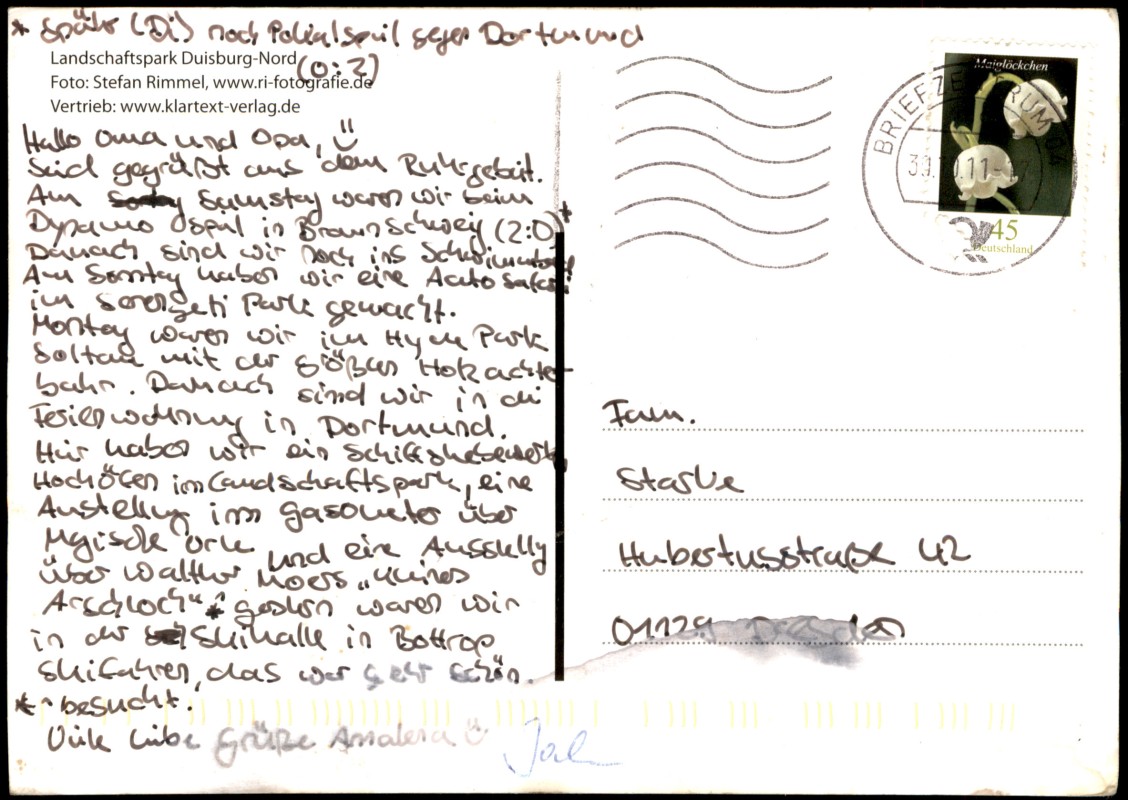 * Später (Di) noch Pokalspiel gegen Dortmund
(0:2)
Landschaftspark Duisburg-Nord
Foto: Stefan Rimmel, www.ri-fotografie.de
Vertrieb: www.klartext-verlag.de
Hallo Oma und Opa,
Seid gegrüßt aus dem Ruhrgebiet.
Am Samstag waren wir beim
Dynamo Spiel in Braunschweig (2:0)*
Danach sind wir noch ins Schwimmbad
Am Sonntag haben wir eine Auto Safari
im Serengeti Park gemacht.
Montag waren wir im Hyde Park
Soltau mit der größten Holzachter-
bahn. Danach sind wir in die
Ferienwohnung in Dortmund.
Hier haben wir ein Schiffshebewerk,
Hochöfen im Landschaftspark, eine
Austellung im Gasometer über
Magische Orte und eine Ausstellung
über Walther Moers „kleines
Arschloch" * gestern waren wir
in der Skihalle in Bottrop
Skifahren, das war sehr schön.
* besucht.
Viele liebe Grüße
Maiglöckchen
45
Deutschland
BRIEFZENTRUM
Fam.
Starke
Hubertusstraße 42
01129 Dresden